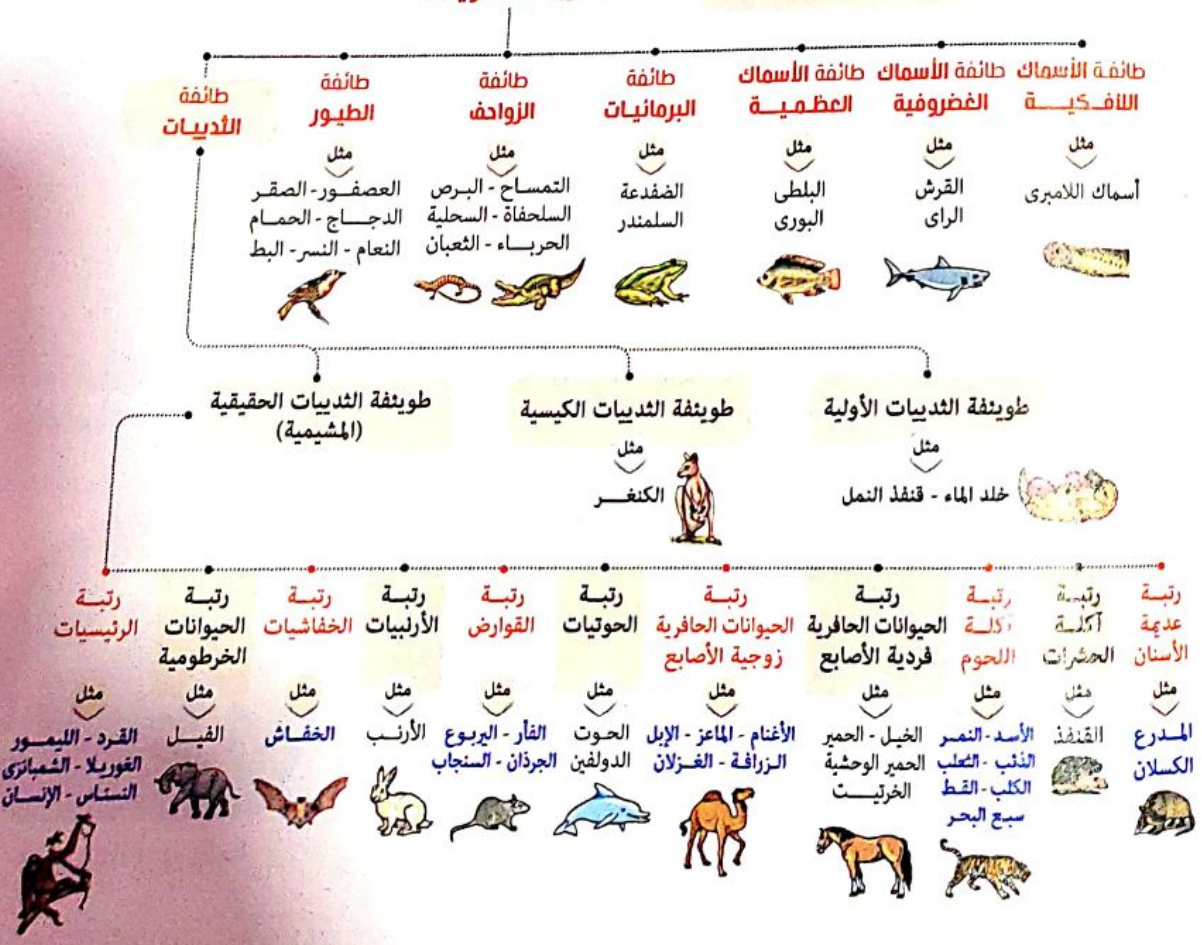 طائفة الأسماك
اللافـكـيـــة
مثل
أسماك اللامبرى
طائفة الأسماك
الغضروفية
مثل
القرش
الراى
طائفة الأسماك
العظـمـيــة
مثل
البلطى
البورى
طائفة
البرمائيات
مثل
الضفدعة
السلمندر
طائفة
الزواحف
مثل
التمساح - البرص
السلحفاة - السحلية
الحربـاء - الثعبان
طائفة
الطيور
مثل
العصفـور - الصقـر
الدجـاج - الحمـام
النعام - النسر - البط
طائفة
الثدييات
طويئفة الثدييات الأولية
مثل
خلد الماء - قنفذ النمل
طويئفة الثدييات الكيسية
مثل
الكنغـــر
طويئفة الثدييات الحقيقية
(المشيمية)
رتبـة
عديمة
الأسنان
مثل
المدرع
الكسلان
رتبـة
آكلـة
الحشرات
مثل
القنفذ
رتبـة
آكلـة
اللحوم
مثل
الأسد - النمـر
الذئب - الثعلب
الكلب - القـط
سبـع البحـر
رتبـة
الحيوانات الحافرية
فردية الأصابع
مثل
الخيـل - الحمير
الحمير الوحشية
الخرتيـت
رتبـة
الحيوانات الحافرية
زوجية الأصابع
مثل
الأغنام - الماعز - الإبل
الـزرافـة - الغـزلان
رتبـة
الحوتيات
مثل
الحوت
الدولفين
رتبـة
القوارض
مثل
الفأر - اليربـوع
الجرذان - السنجاب
رتبـة
الأرنبيات
مثل
الأرنـب
رتبـة
الخفاشيات
مثل
الخفـاش
رتبـة
الحيوانات
الخرطومية
مثل
الفيـل
رتبـة
الرئيسيات
مثل
القـرد - الليمـور
الغوريـلا - الشمبانزى
النسناس - الإنسـان